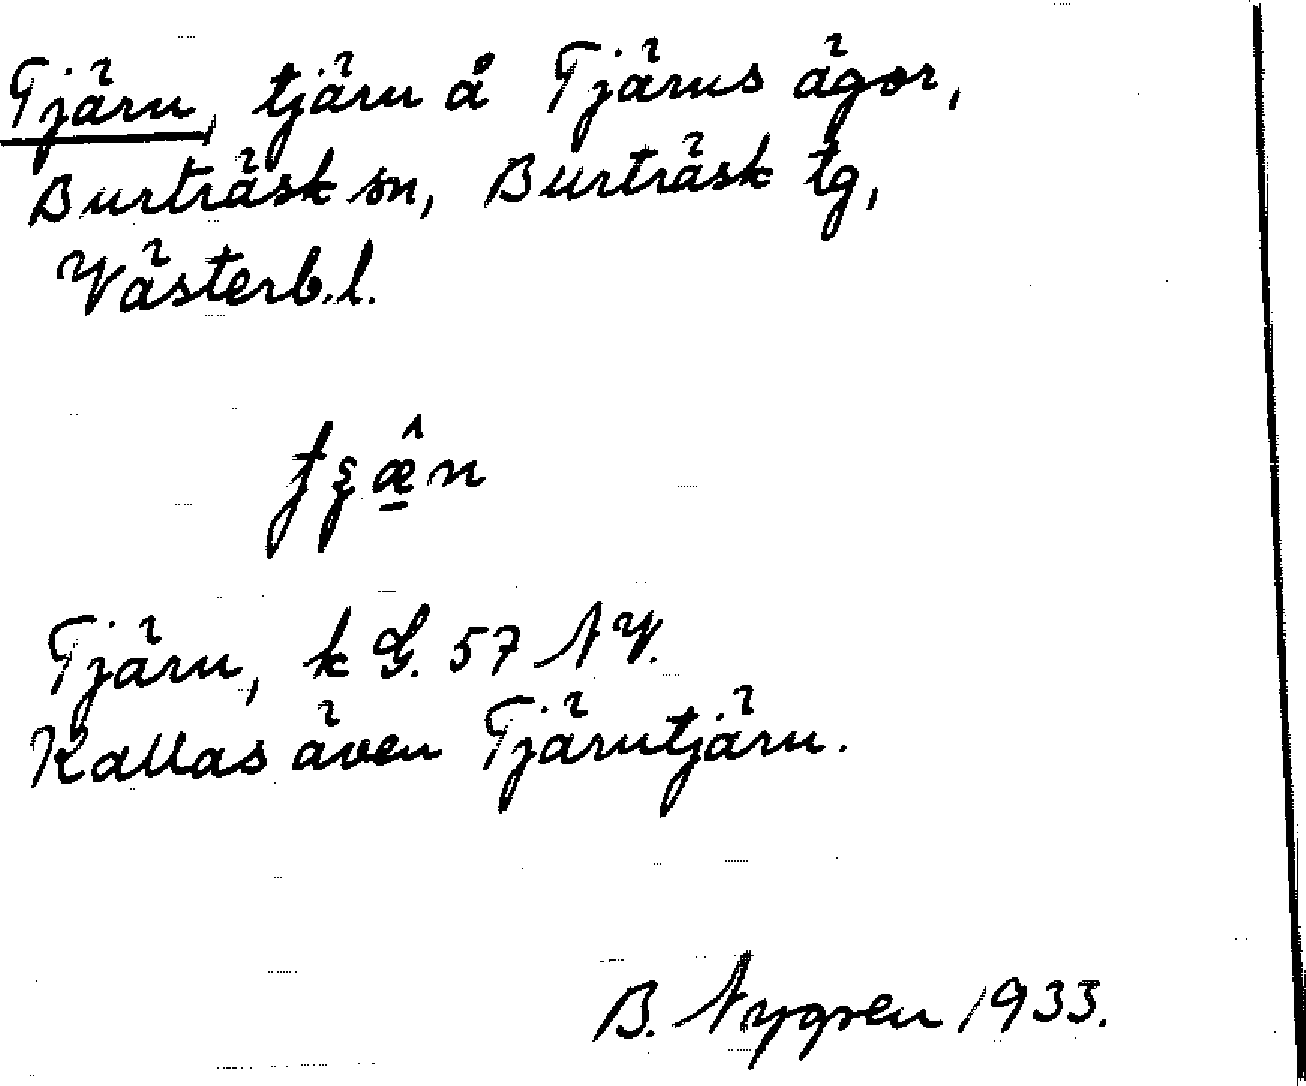 Tjärn, tjärn å Tjärns ägor,
Burträsk sn, Burträsk tg,
Västerb.l.
Tjärn, k G. 57 NV.
Kallas även Tjärntjärn.
B. Nygren 1933.